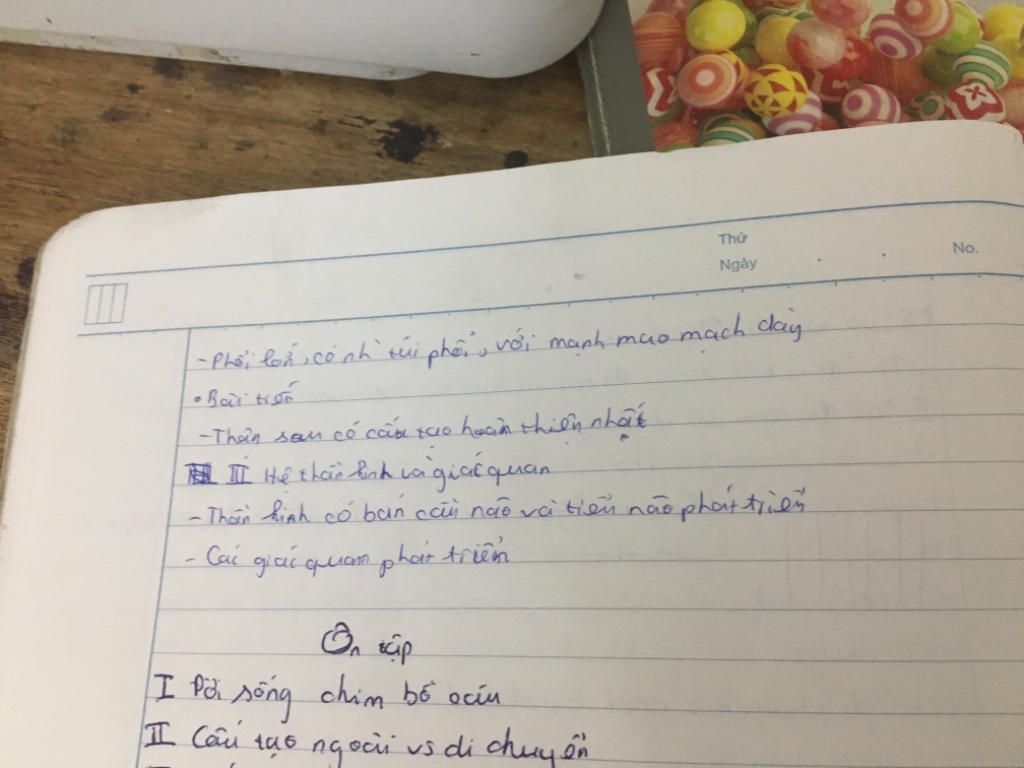 Thứ
Ngày
No.
- Phổi lớn, có nh` túi phổi, với mạnh mao mạch dày
• Bài tiết
- Thận sau có cấu tạo hoàn thiện nhất
III Hệ thần kinh và giác quan
- Thần kinh có bán cầu não và tiểu não phát triển
- Các giác quan phát triển
Ôn tập
I Đời sống chim bồ câu
II Cấu tạo ngoài vs di chuyển